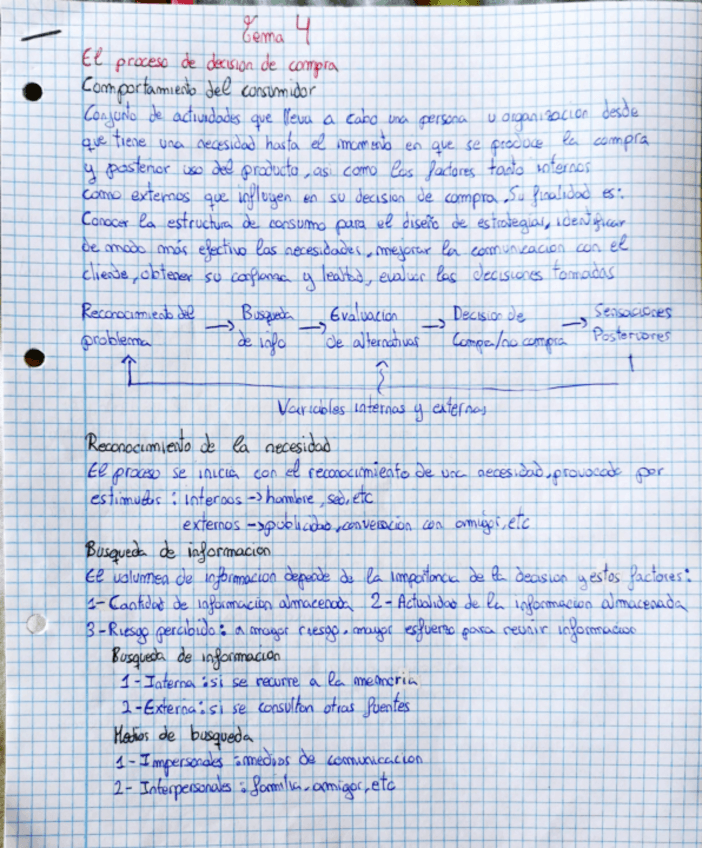 Tema 4
El proceso de decision de compra
Comportamiento del consumidor
Conjunto de actividades que lleva a cabo una persona u organizacion desde
que tiene una necesidad hasta el momento en que se produce la compra
y posterior uso del producto, asi como los factores tanto internos
como externos que influyen en su decision de compra. Su finalidad es:
Conocer la estructura de consumo para el diseño de estrategias, identificar
de modo más efectivo las necesidades, mejorar la comunicacion con el
cliente, obtener su confianza y lealtad, evaluar las decisiones tomadas
Reconocimiento del problema → Busqueda de info → Evaluacion de alternativas → Decision de Compra/no compra → Sensaciones Posteriores
Variables internas y externas
Reconocimiento de la necesidad
El proceso se inicia con el reconocimiento de una necesidad, provocado por
estimulos: internos → hambre, sed, etc
externos → publicidad, conversación con amigos, etc
Busqueda de informacion
El volumen de informacion depende de la importancia de la decision y estos factores:
1- Cantidad de informacion almacenada 2- Actualidad de la informacion almacenada
3- Riesgo percibido: a mayor riesgo, mayor esfuerzo para reunir informacion
Busqueda de informacion
1- Interna: si se recurre a la memoria
2- Externa: si se consultan otras fuentes
Medios de busqueda
1- Impersonales: medios de comunicacion
2- Interpersonales: familia, amigos, etc